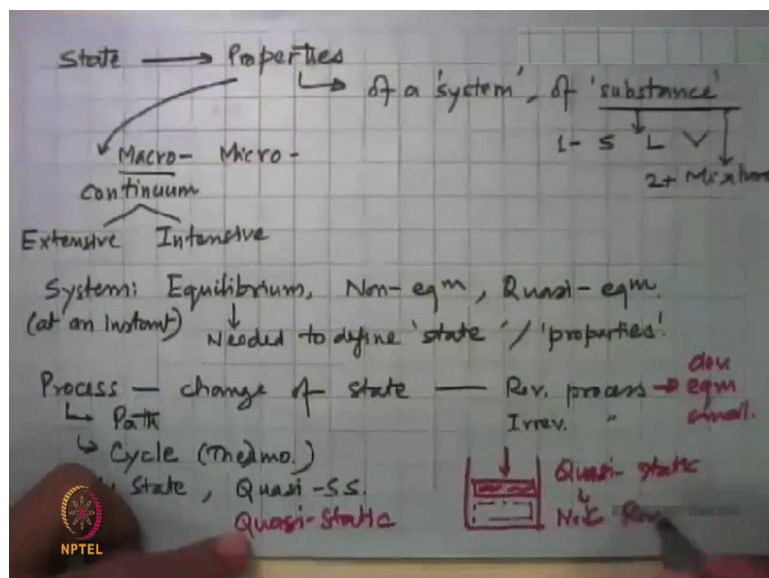 State → Properties
↳ of a 'system', of 'substance'
1- S L V
2+ Mixture
Macro- Micro-
continuum
Extensive Intensive
System: Equilibrium, Non-eqm, Quasi-eqm.
(at an instant) Needed to define 'state' / 'properties'.
Process — change of state — Rev. process → dev
eqm
small.
Irrev. "
↳ Path
↳ Cycle (Thermo.)
State, Quasi-S.S.
Quasi-static
Quasi-static
↓
Not Rev
NPTEL